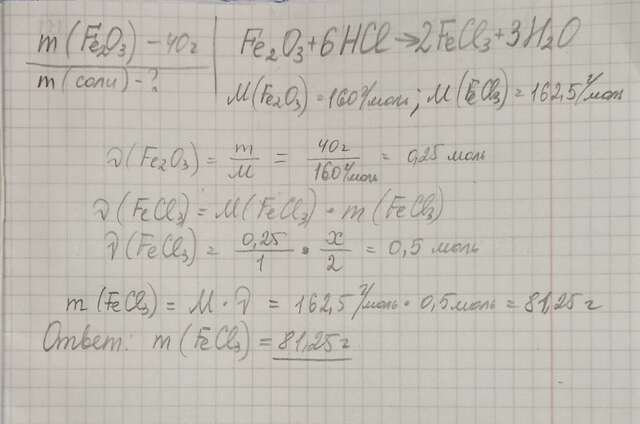 m (Fe₂O₃) - 40 г
m (соли) - ?
Fe₂O₃ + 6HCl → 2FeCl₃ + 3H₂O
M(Fe₂O₃) = 160 г/моль; M(FeCl₃) = 162,5 г/моль
ν(Fe₂O₃) = m/M = 40 г/160 г/моль = 0,25 моль
ν(FeCl₃) = M(FeCl₃) · m(FeCl₃)
ν(FeCl₃) = 0,25/1 · x/2 = 0,5 моль
m (FeCl₃) = M · ν = 162,5 г/моль · 0,5 моль = 81,25 г
Ответ: m (FeCl₃) = 81,25 г